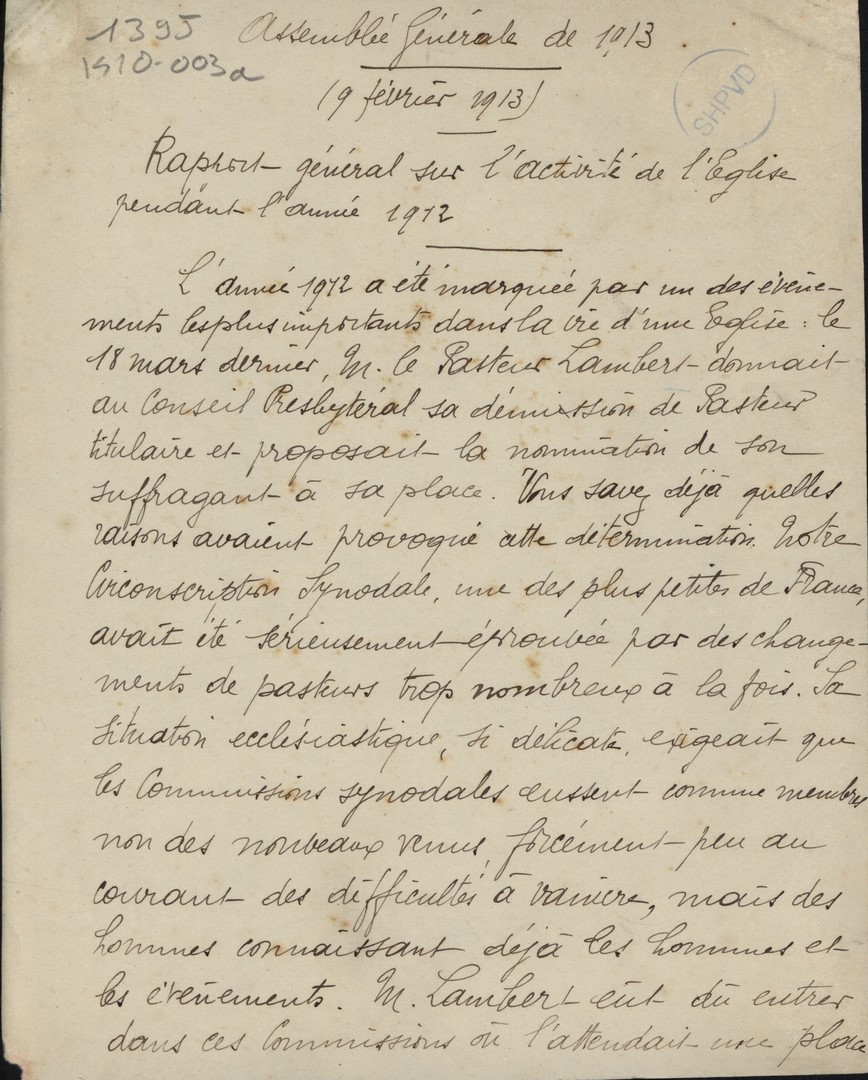 1395
1910-003a
SHPVD
Assemblée Générale de 1913
(9 février 1913)
Rapport général sur l'activité de l'Eglise
pendant l'année 1912
L'année 1912 a été marquée par un des évène-
ments les plus importants dans la vie d'une Eglise : le
18 mars dernier, M. le Pasteur Lambert donnait
au Conseil Presbytéral sa démission de Pasteur
titulaire et proposait la nomination de son
suffragant à sa place. Vous savez déjà quelles
raisons avaient provoqué cette détermination. Notre
Circonscription Synodale, une des plus petites de France,
avait été sérieusement éprouvée par des change-
ments de pasteurs trop nombreux à la fois. Sa
situation ecclésiastique, si délicate, exigeait que
les Commissions synodales eussent comme membres
non des nouveaux venus, forcément peu au
courant des difficultés à vaincre, mais des
hommes connaissant déjà les hommes et
les évènements. M. Lambert eût dû entrer
dans ces Commissions où l'attendait une place